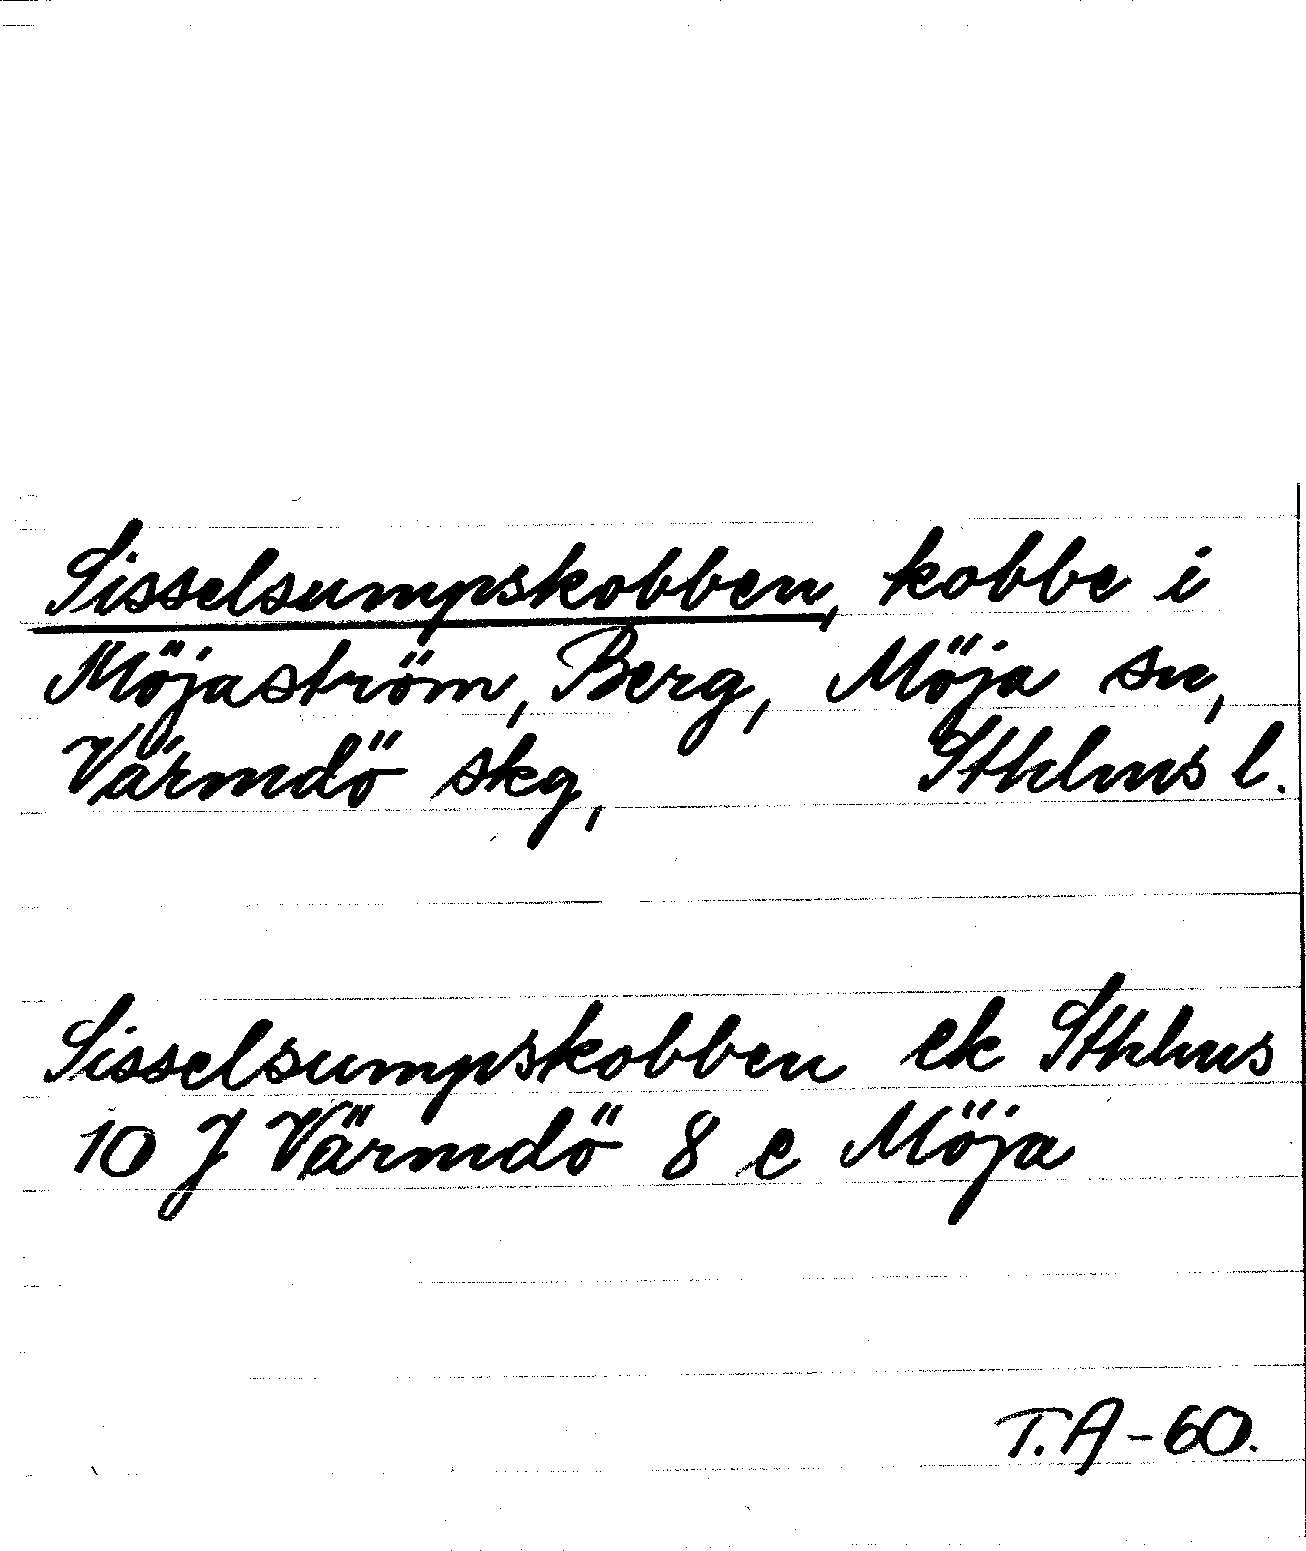 Sisselsumpskobben, kobbe i
Möjaström, Berg, Möja sn,
Värmdö skg, Sthlms l.
Sisselsumpskobben ek Sthlms
10 J Värmdö 8 e Möja
T.A-60.